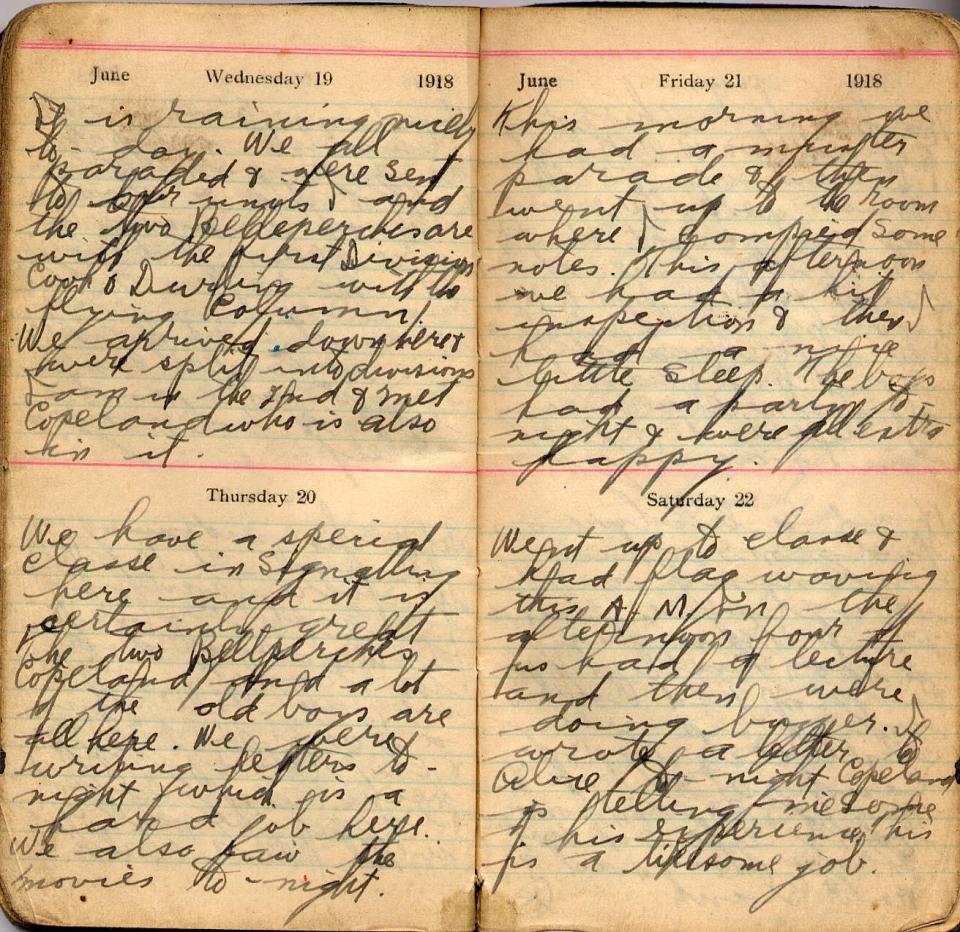 June Wednesday 19 1918
It is raining nicely
to-day. We all
paraded & were sent
to our units and
the two Belleperches are
with the first Division
Cook & Durling with the
flying Column.
We arrived down here &
were split into divisions
I am in the 2nd & met
Copeland who is also
in it.
Thursday 20
We have a special
classe in Signalling
here and it is
certainly great
The two Bellperches
Copeland and a lot
of the old boys are
all here. We were
writing letters to-
night which is a
hard job here.
We also saw the
movies to-night.
June Friday 21 1918
This morning we
had a muster
parade & then
went up to the room
where I compied some
notes. This afternoon
we had a kit
inspection & then I
had a nice
little sleep. The boys
had a party to-
night & were all extra
happy.
Saturday 22
Went up to classe &
had flag waving
this A.M. In the
afternoon four of
us had a lecture
and then were
doing buzzer. I
wrote a letter to
Alice to-night Copeland
is telling me some
of his experience, his
is a lifesome job.